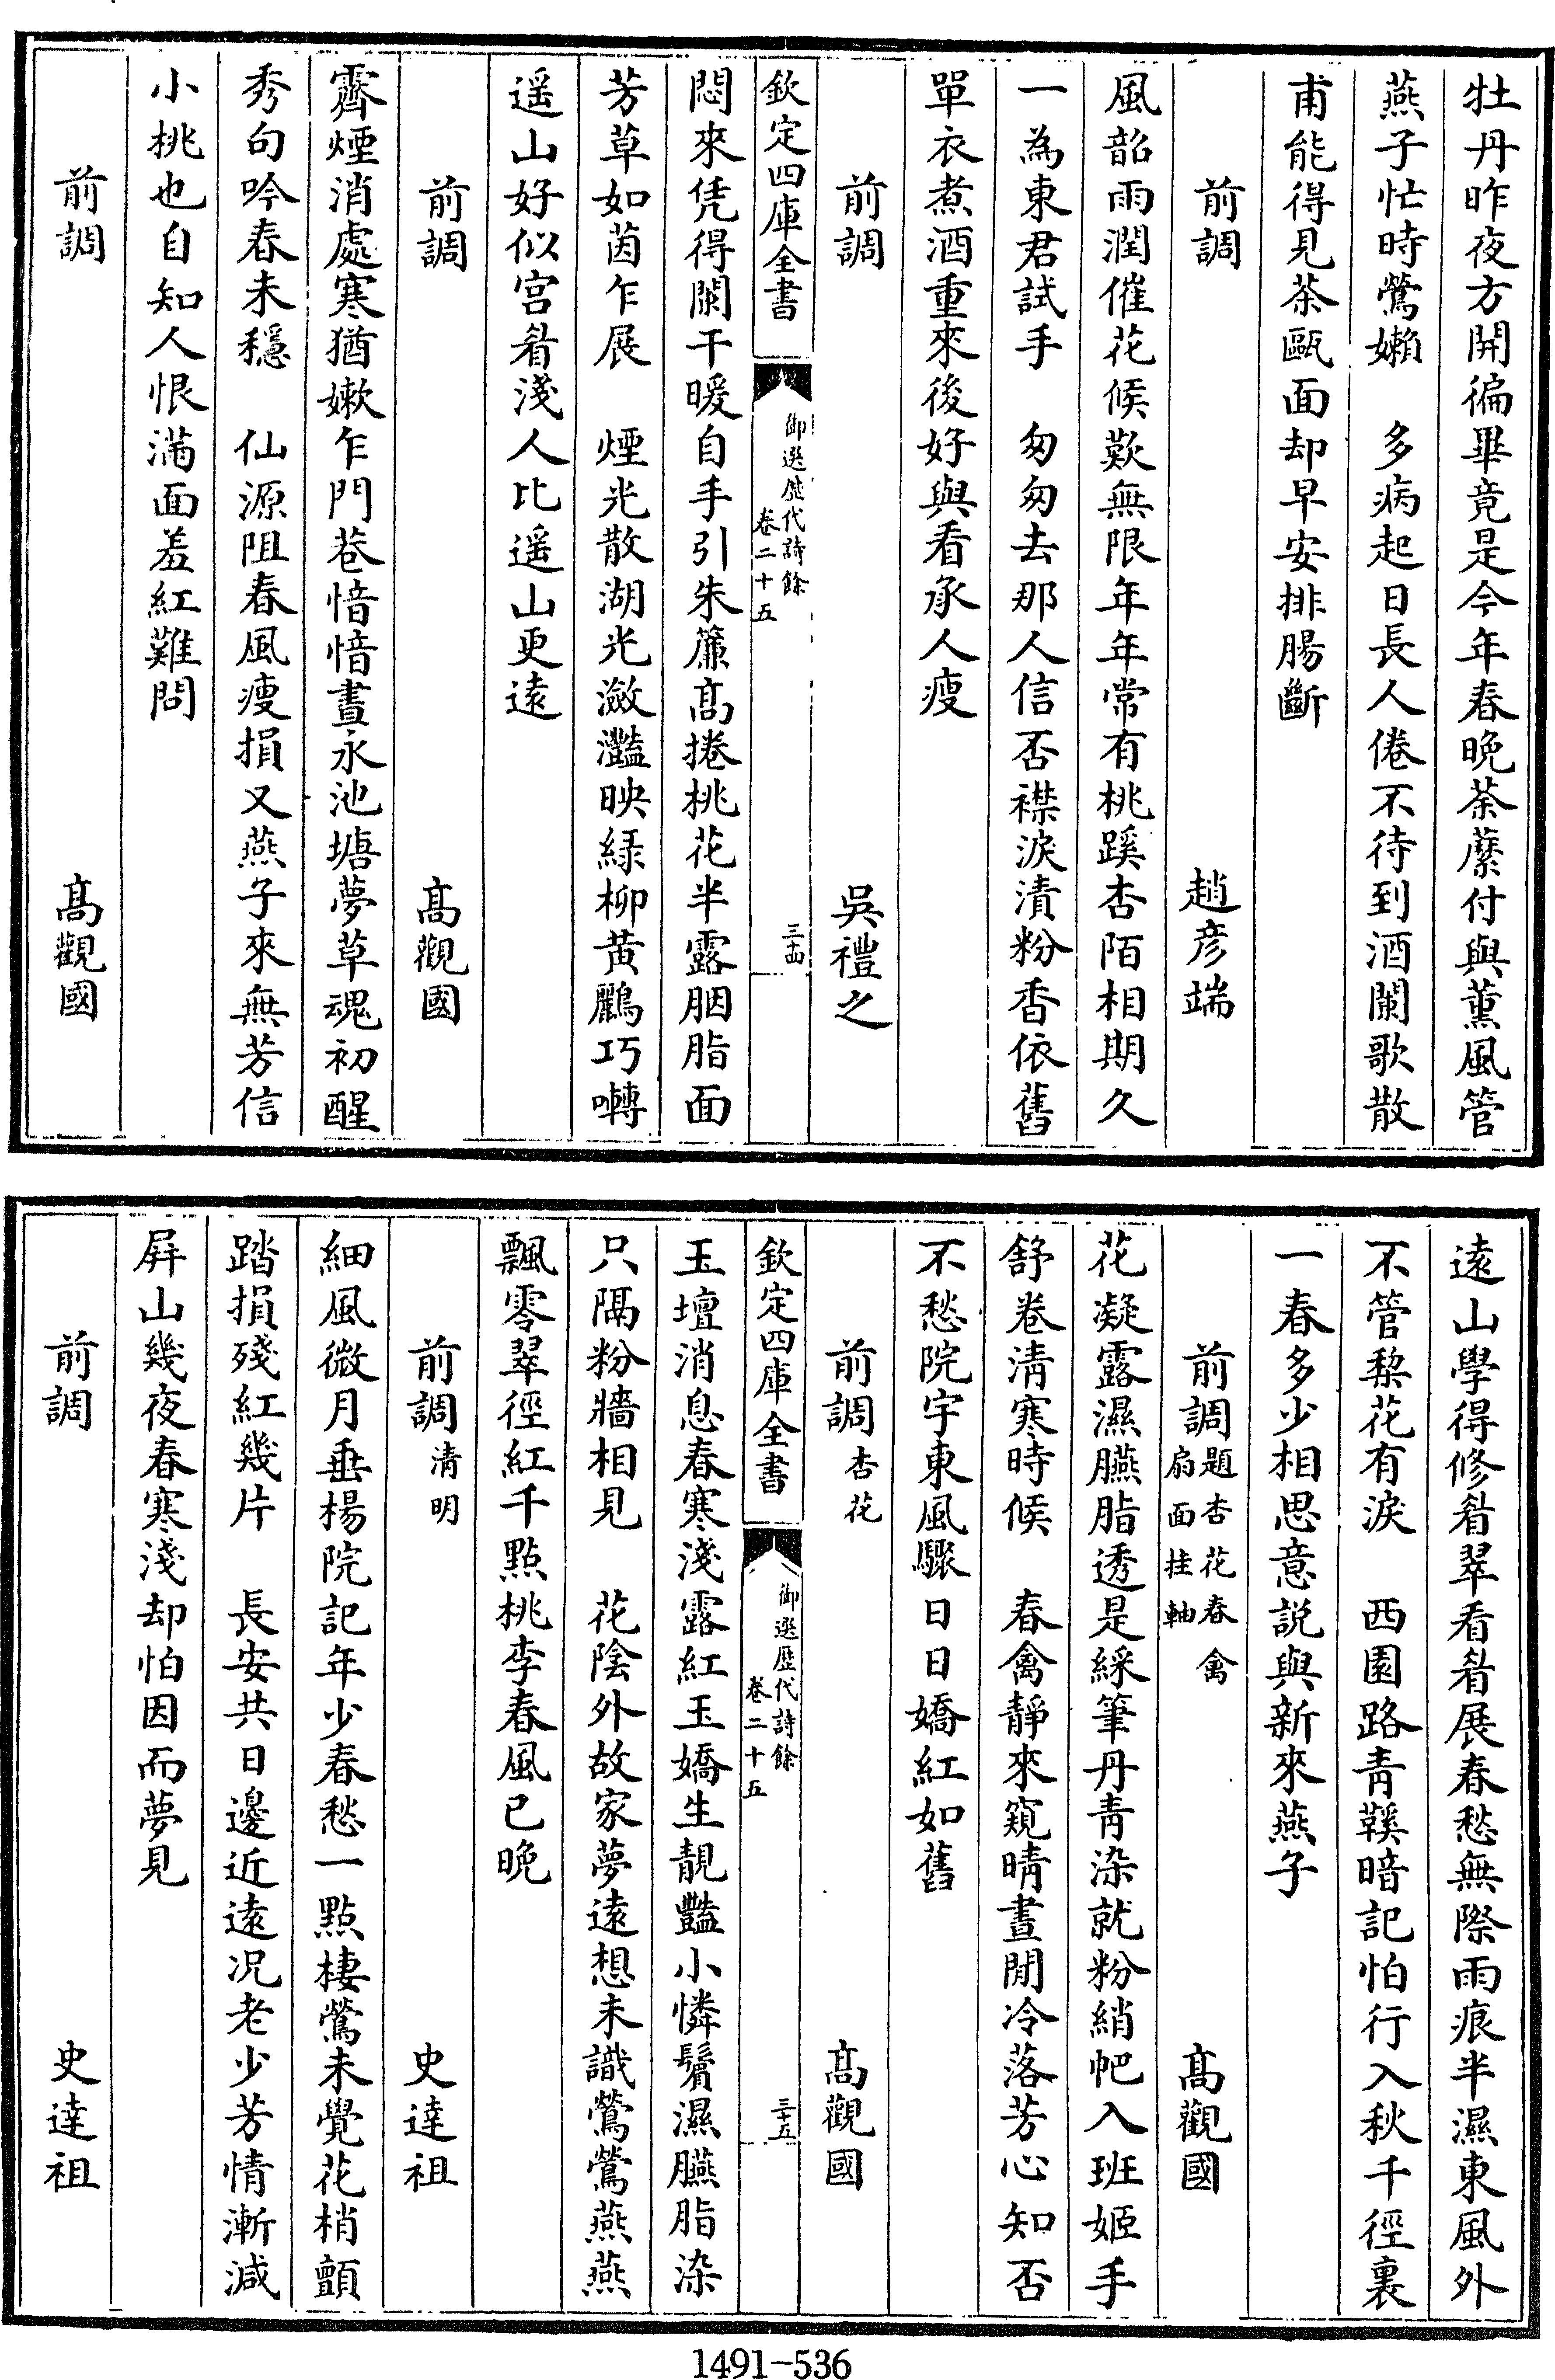 牡丹昨夜方開徧畢竟是今年春晚荼蘼付與薰風管
燕子忙時鶯嬾　多病起日長人倦不待到酒闌歌散
甫能得見茶甌面却早安排腸斷
前調　趙彦端
風韶雨潤催花候歎無限年年常有桃蹊杏陌相期久
一為東君試手　匆匆去那人信否襟淚漬粉香依舊
單衣煮酒重來後好與看承人瘦
前調　吳禮之
欽定四庫全書　御選歷代詩餘　卷二十五　三十四
悶來凭得闌干暖自手引朱簾髙捲桃花半露胭脂面
芳草如茵乍展　煙光散湖光瀲灩映緑柳黄鸝巧囀
遥山好似宫眉淺人比遥山更逺
前調　髙觀國
霽煙消處寒猶嫩乍門巷愔愔晝永池塘夢草魂初醒
秀句吟春未穩　仙源阻春風瘦損又燕子來無芳信
小桃也自知人恨滿面羞紅難問
前調　髙觀國
逺山學得修眉翠看眉展春愁無際雨痕半濕東風外
不管棃花有淚　西園路青鞵暗記怕行入秋千徑裏
一春多少相思意說與新來燕子
前調題杏花春禽扇面挂軸　髙觀國
花凝露濕臙脂透是綵筆丹青染就粉綃帊入班姬手
舒卷清寒時候　春禽靜來窺晴晝閒冷落芳心知否
不愁院宇東風驟日日嬌紅如舊
前調杏花　髙觀國
欽定四庫全書　御選歷代詩餘　卷二十五　三十五
玉壇消息春寒淺露紅玉嬌生靚豔小憐鬢濕臙脂染
只隔粉牆相見　花陰外故家夢逺想未識鶯鶯燕燕
飄零翠徑紅千點桃李春風已晩
前調清明　史達祖
細風微月垂楊院記年少春愁一點棲鶯未覺花梢顫
踏損殘紅幾片　長安共日邊近逺况老少芳情漸減
屏山幾夜春寒淺却怕因而夢見
前調　史達祖
1491-536